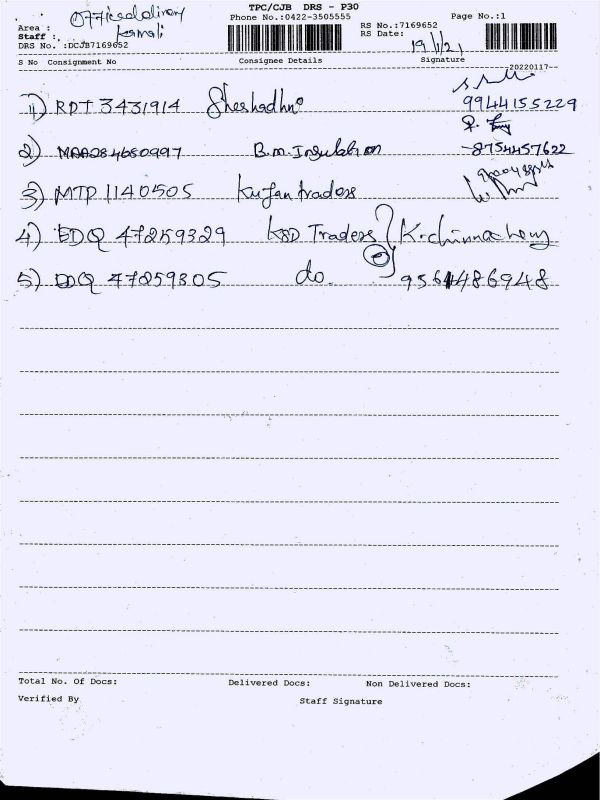 TPC/CJB DRS - P30
Phone No.:0422-3505555
Page No.:1
Area :
Staff :
DRS No. :DCJB7169652
RS No.:7169652
RS Date: 19/1/21
S No Consignment No Consignee Details Signature
20220117--
1) RDT 3431914 9944155229
2) MAA284680997 B.m. Insulation 8754457622
3) MTP 1140505 traders
4) EDQ 47259329 KSD Traders
5) EDQ 47259305 do. 9561486948
Total No. Of Docs: Delivered Docs: Non Delivered Docs:
Verified By Staff Signature